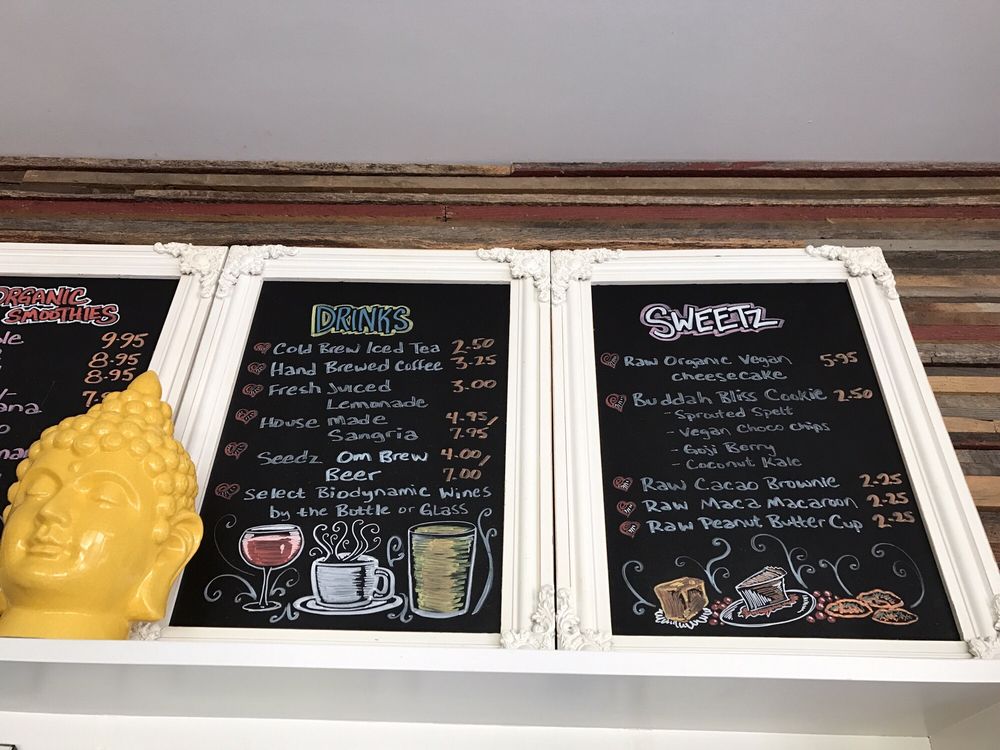 ORGANIC
SMOOTHIES
9.95
8.95
8.95
DRINKS
Cold Brew Iced Tea 2.50
Hand Brewed Coffee 3.25
Fresh Juiced 3.00
Lemonade
House Made 4.95/
Sangria 7.95
Seedz Om Brew 4.00/
Beer 7.00
Select Biodynamic Wines
by the Bottle or Glass
SWEETZ
Raw Organic Vegan 5.95
cheesecake
Buddah Bliss Cookie 2.50
- Sprouted Spelt
- Vegan Choco chips
- Goji Berry
- Coconut Kale
Raw Cacao Brownie 2.25
Raw Maca Macaroon 2.25
Raw Peanut Butter Cup 2.25